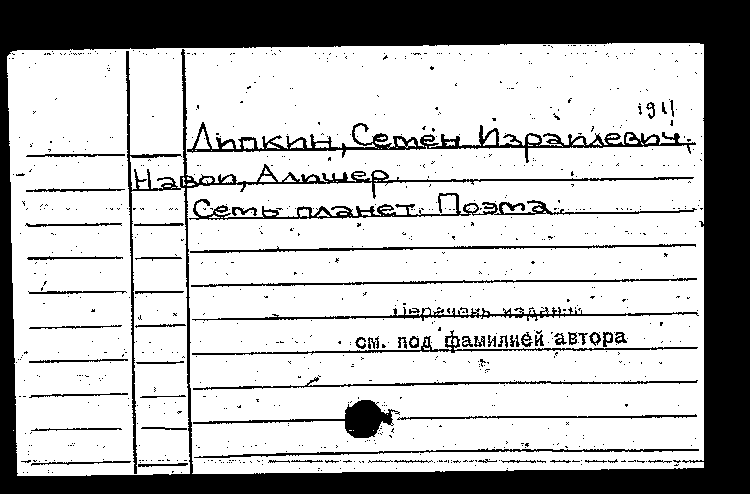 1911
Липкин, Семён Израилевич,
Навои, Алишер.
Семь планет. Поэма.
Перечень изданий
см. под фамилией автора